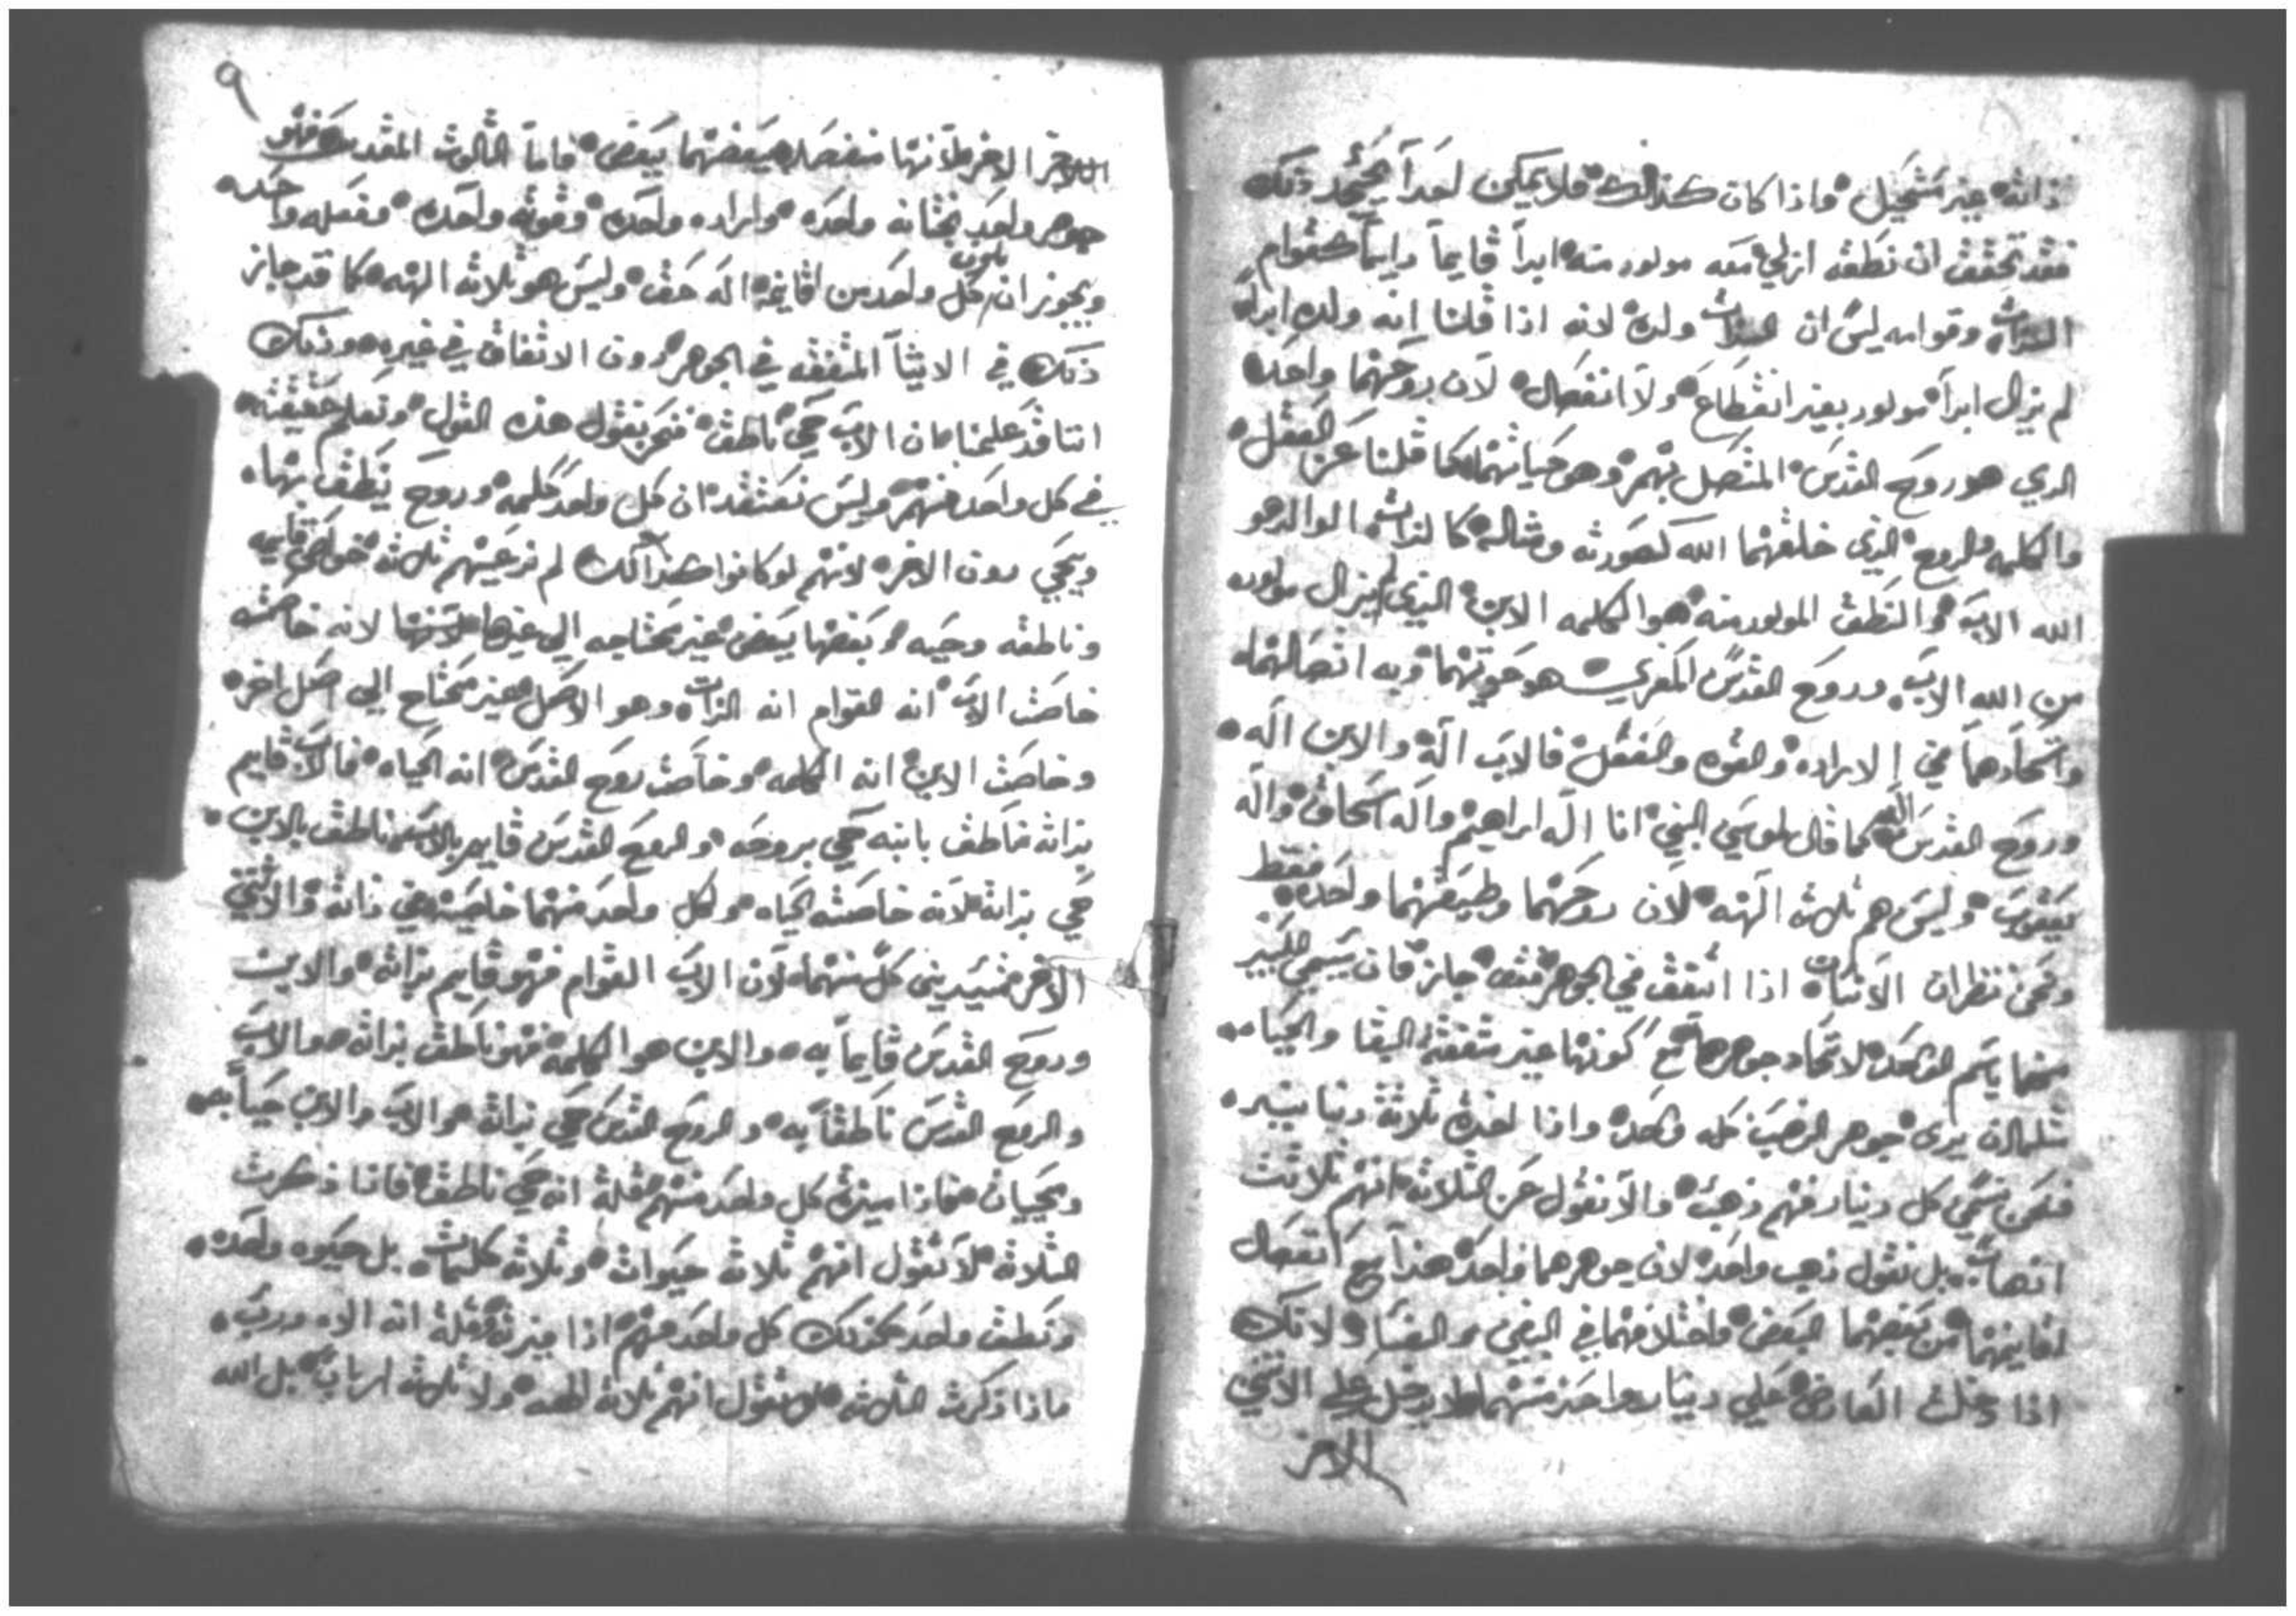 ذاته غير مستحيل واذا كان كذلك فلا يمكن احداً يجحد ذلك
فقد تحقق ان نطقه ازلي معه مولود منه ابداً قايماً دايماً كقوام
الذات وقوامه ليس ان الذات ولده لانه اذا قلنا انه ولده ابداً
لم يزال ابداً مولود بغير انقطاع ولا انفصال لان روحهما واحده
الدي هو روح القدس المتصل بهم وهو حياتهما كما قلنا عن العقل
والكلمه والروح الذي خلقهما الله كصورته ومثاله كالذات الوالد هو
الله الاب والنطق المولود منه هو الكلمه الابن الذي لم يزال مولود
من الله الاب وروح القدس المعزي هو حيوتهما وبه اتصالهما
واتحادهما في الاراده والقوه والفعل فالاب اله والابن اله
وروح القدس اله كما قال لموسي النبي انا اله ابراهيم واله اسحاق واله
يعقوب وليس هم ثلاث الهه لان روحهما وطبيعتهما واحده فقط
ونحن ننظر ان الاشياء اذا اتفقت في الجوهر فقد جاز فان يسمي الكبير
منهما باسم الواحد لاتحاد جوهرها مع كونها غير متفقة البقا والحياه
مثلما ان يري جوهر الذهب كله واحد واذا اخذت ثلاثة دنانير
فنحن نسمي كل دينار منهم ذهب ولا نقول عن الثلاثه انهم ثلاثت
اذهاب بل نقول ذهب واحد لان جوهرهما واحد هذا مع انفصال
اقانيمهما من بعضهما البعض واختلافهما في البقي والفنا ولانك
اذا دخلت العارض علي دينار واحد منهما لا يدخل علي الاثنين
الاخر
٩
الاخر لانها منفصله بعضهما ببعض فاما الثالوث المقدس فهو
جوهر واحد بختانه واحده واراده واحده وقوته واحده وفعله واحده
ويجوز ان يكون كل واحد من اقانيمه اله حق وليس هو ثلاثه الهه كما قد جاز
ذلك في الاشيآ المتفقه في الجوهر دون الاتفاق في غيره وذلك
اننا قد علمنا ان الاب حي ناطق فنحن نقول هذه القول ونعلم حقيقته
في كل واحد منهم وليس نعتقد ان كل واحد كلمه وروح ينطق بها
ويحيي دون الاخر لانهم لو كانوا كذلك لم نزعينهم ثلاثه خواص قايمه
وناطقه وحيه وبعضها ببعض غير محتاجه الي غيرها لانها لانه خاصته
خاصت الاب انه القوام انه الذات وهو الاصل غير محتاج الي اصل اخر
وخاصت الابن انه الكلمه وخاصت روح القدس انه الحياه فالاب قايم
بذاته ناطق بابنه حي بروحه والروح القدس قايم بالاب ناطق بالابن
حي بذاته لانه خاصته الحياه ولكل واحد منهما خاصيته في ذاته والاثنين
الاخر مشيدين كل منهما لان الاب القوام فهو قايم بذاته والابن
وروح القدس قايماً به والابن هو الكلمه فهو ناطق بذاته والاب
والروح القدس ناطقاً به والروح القدس حي بذاته والاب والابن حياً به
ويحييان فاذا ميزت كل واحد منهم فقلة انه حي ناطق فاذا ذكرت
الثلاثة لا نقول انهم ثلاثة حيوات وثلاثة كلمات بل حيوه واحده
ونطق واحد كذلك كل واحد منهم اذا ميزته فقلة انه الاه ورب
فاذا ذكرت الثلاثه لا نقول انهم ثلاثه الهه ولا ثلاثه ارباب بل الله